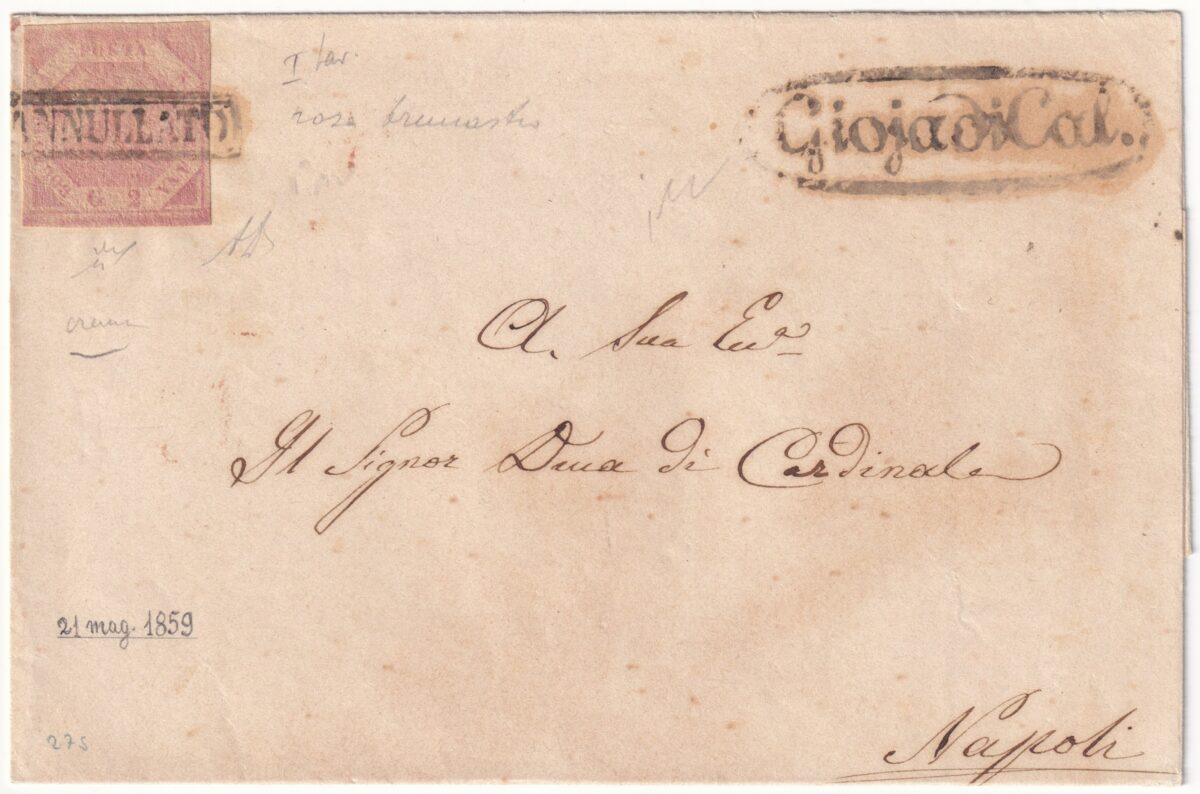 ANNULLATO
G 2
I tav.
rosa brunastro
Gioja di Cal.
A. Sua Ecc.a
Il Signor Duca di Cardinale
21 mag. 1859
275
Napoli